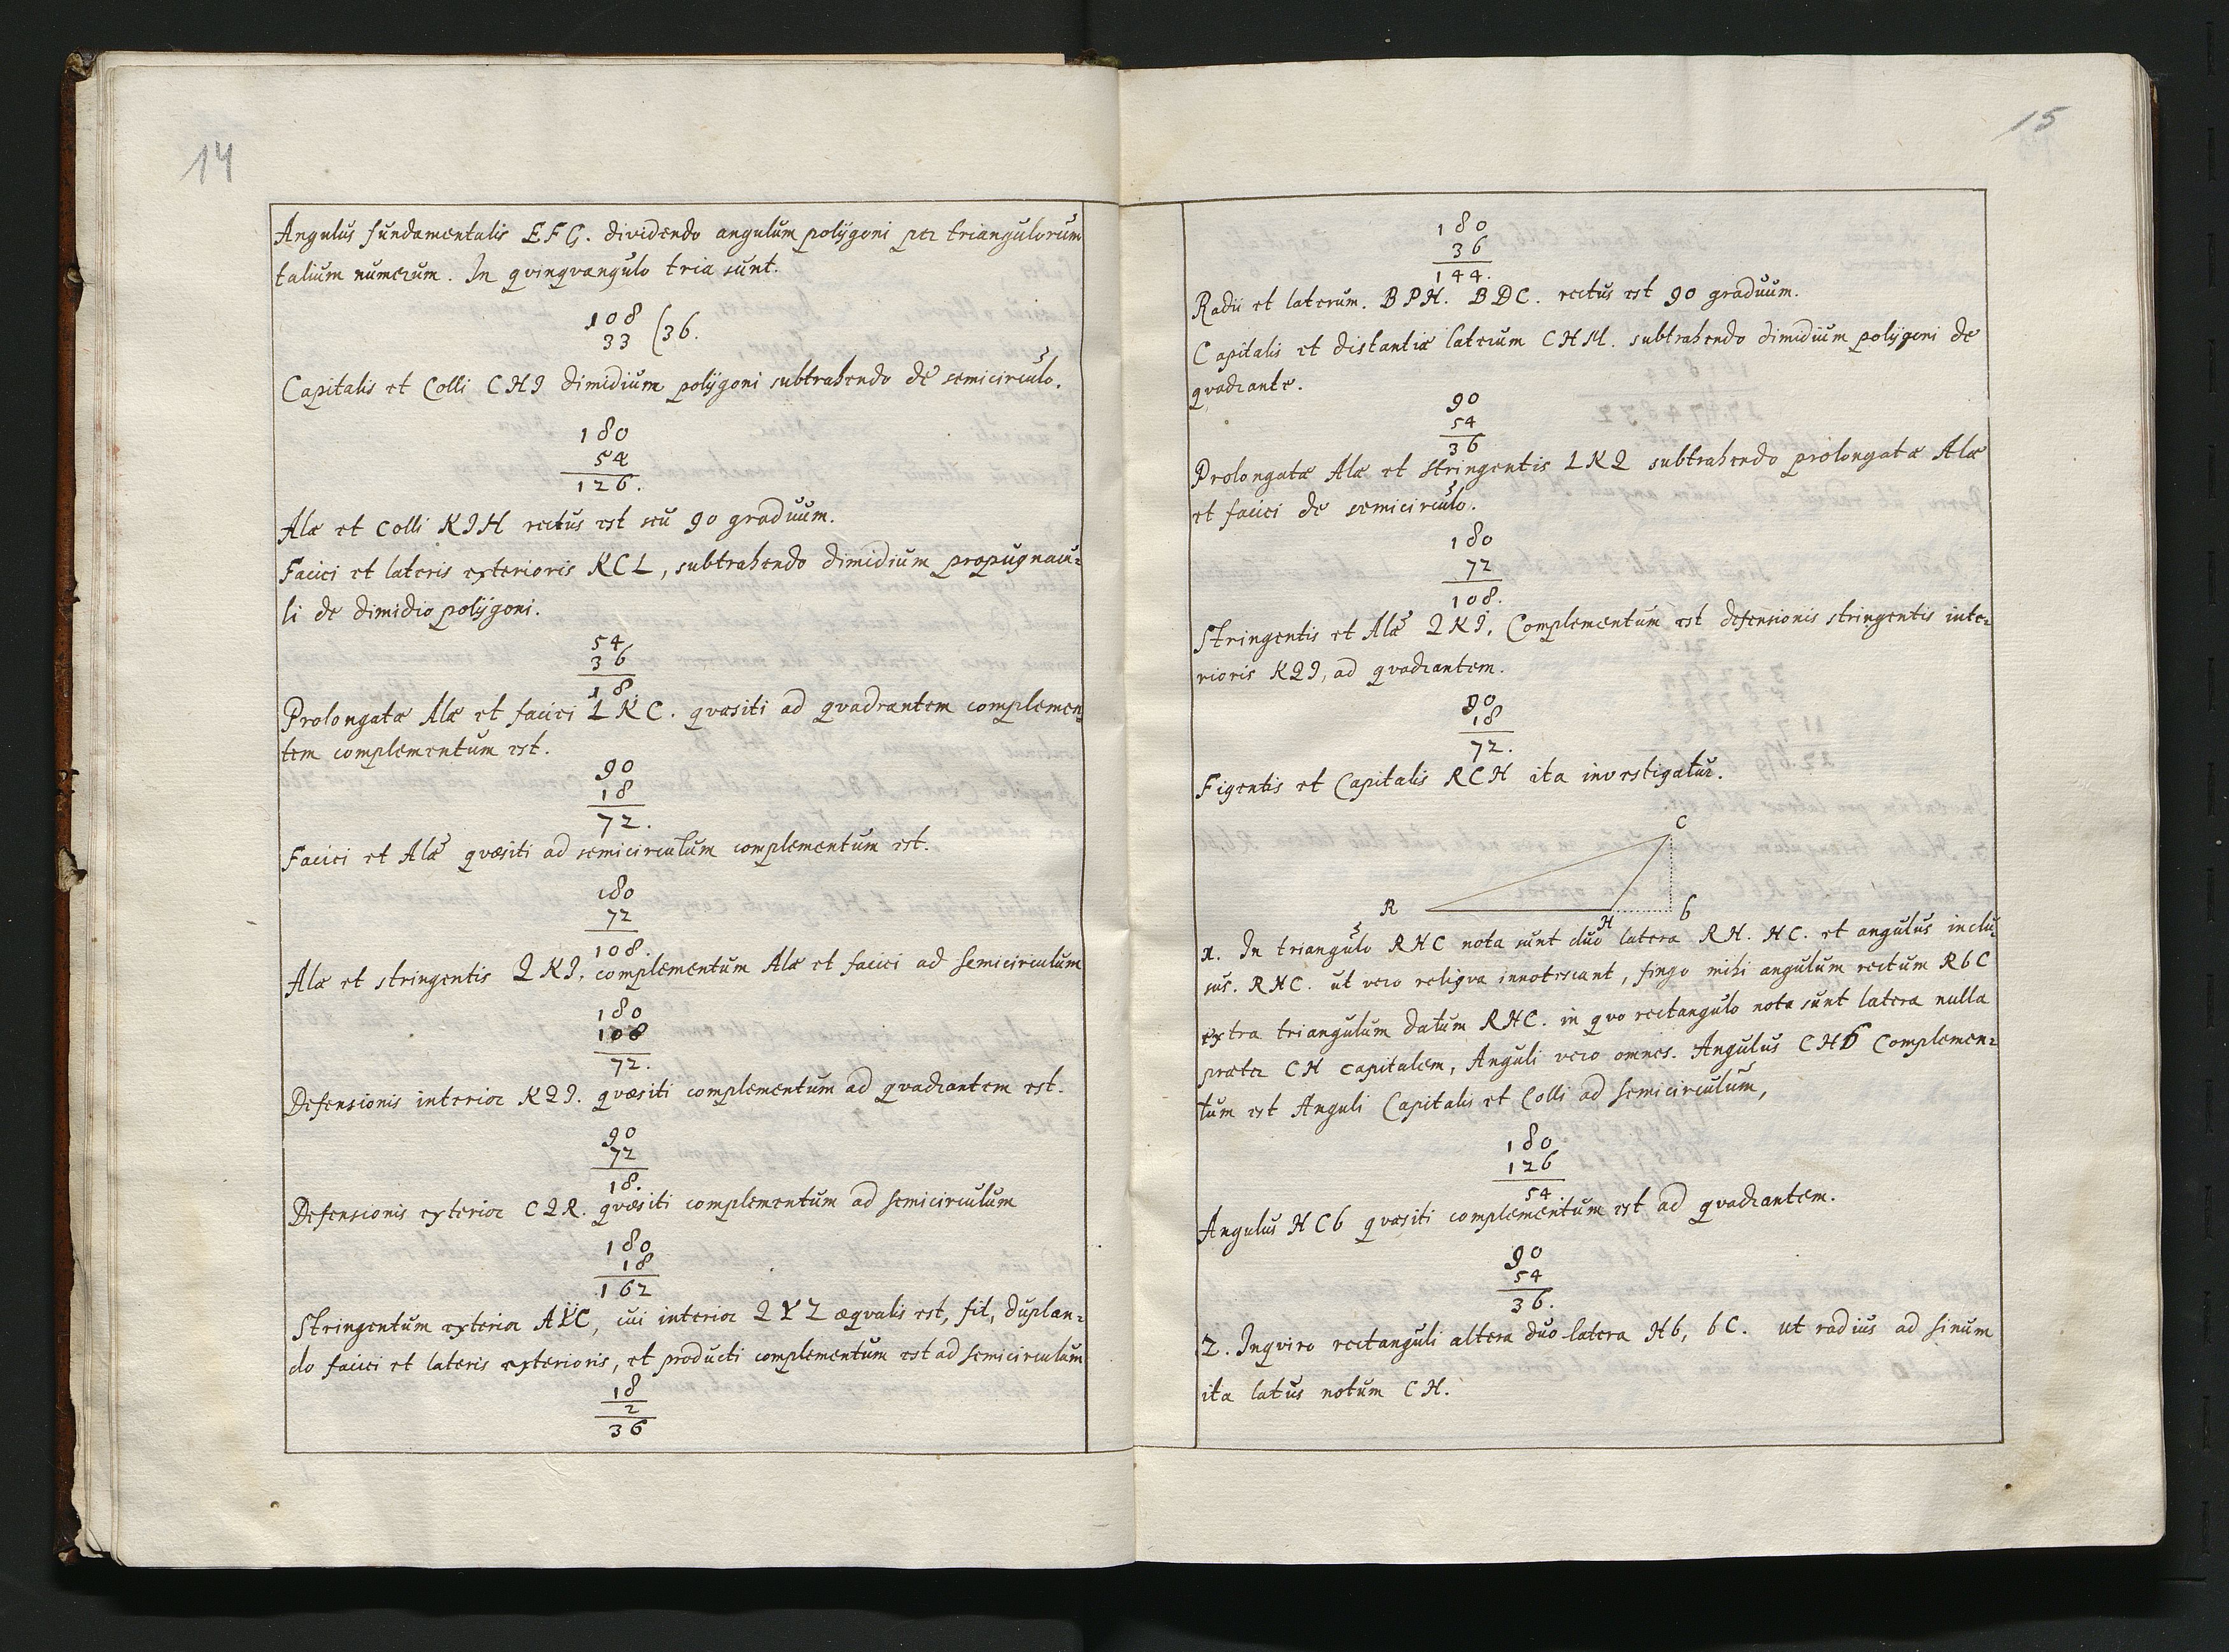 14
Angulus fundamentalis EFG. dividendo angulum polygoni per triangulorum
talium numerum. In qvinqvangulo tria sunt.
108
33 (36.
Capitalis et Colli CHI dimidium polygoni subtrahendo de semicirculo.
180
54
126.
Alæ et Colli KIH rectus est seu 90 graduum.
Faciei et lateris exterioris KCL, subtrahendo dimidium propugnacu-
li de dimidio polygoni.
54
36
18.
Prolongatæ Alæ et faciei LKC. qvæsiti ad qvadrantem complemen-
tem complementum est.
90
18
72.
Faciei et Alæ qvæsiti ad semicirculum complementum est.
180
72
108.
Alæ et stringentis QKI, complementum Alæ et faciei ad semicirculum
180
108
72.
Defensionis interior KQI. qvæsiti complementum ad qvadrantem est.
90
72
18.
Defensionis exterior CQR. qvæsiti complementum ad semicirculum
180
18
162
Stringentum exterior AYC, cui interior QYZ æqvalis est, fit, duplan-
do faciei et lateris exterioris, et producti complementum est ad semicirculum
18
2
36
15
180
36
144.
Radii et laterum. BPH. BDC. rectus est 90 graduum.
Capitalis et distantiæ laterum CHM. subtrahendo dimidium polygoni de
qvadrante.
90
54
36
Prolongatæ Alæ et stringentis LKQ subtrahendo prolongatæ Alæ
et faciei de semicirculo.
180
72
108.
Stringentis et Alæ QKI, Complementum est defensionis stringentis inte-
rioris KQI, ad qvadrantem.
90
18
72.
Figentis et Capitalis RCH ita investigatur.
C
R H b
1. In triangulo RHC nota sunt duo latera RH. HC. et angulus inclu-
sus. RHC. ut vero reliqva innotescant, fingo mihi angulum rectum RbC
extra triangulum datum RHC. in qvo rectangulo nota sunt latera nulla
præter CH capitalem, Anguli vero omnes. Angulus CHb Complemen-
tum est Anguli Capitalis et Colli ad semicirculum,
180
126
54
Angulus HCb qvæsiti complementum est ad qvadrantem.
90
54
36.
2. Inqviro rectanguli altera duo latera Hb, bC. ut radius ad sinum
ita latus notum CH.